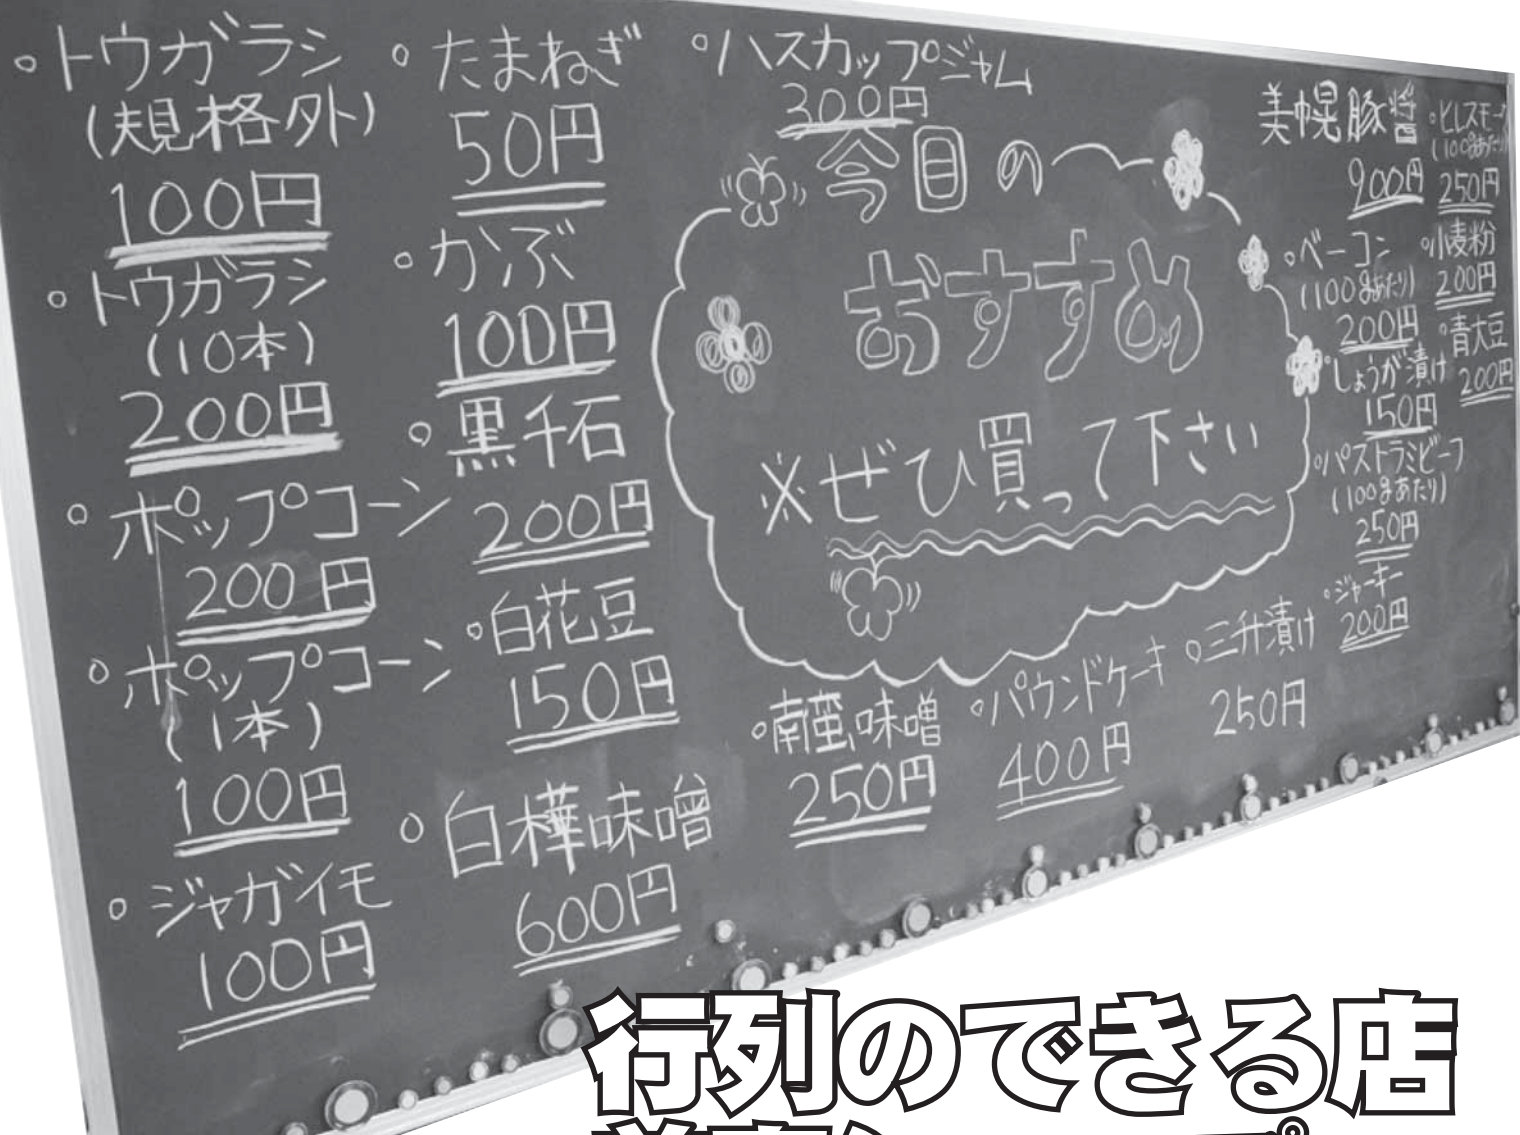 ○トウガラシ
(規格外)
100円
○トウガラシ
(10本)
200円
○ポップコーン
200円
○ポップコーン
(1本)
100円
○ジャガイモ
100円
○たまねぎ
50円
○かぶ
100円
○黒千石
200円
○白花豆
150円
○白樺味噌
600円
○ハスカップジャム
300円
今日の
おすすめ
※ぜひ買って下さい
○南蛮味噌
250円
○パウンドケーキ
400円
○三升漬け
250円
美幌豚醤
900円
○ベーコン
(100gあたり)
200円
○しょうが漬け
150円
○パストラミビーフ
(100gあたり)
250円
○ジャーキー
200円
○ヒレスモーク
(100gあたり)
250円
○小麦粉
200円
○青大豆
200円
行列のできる店